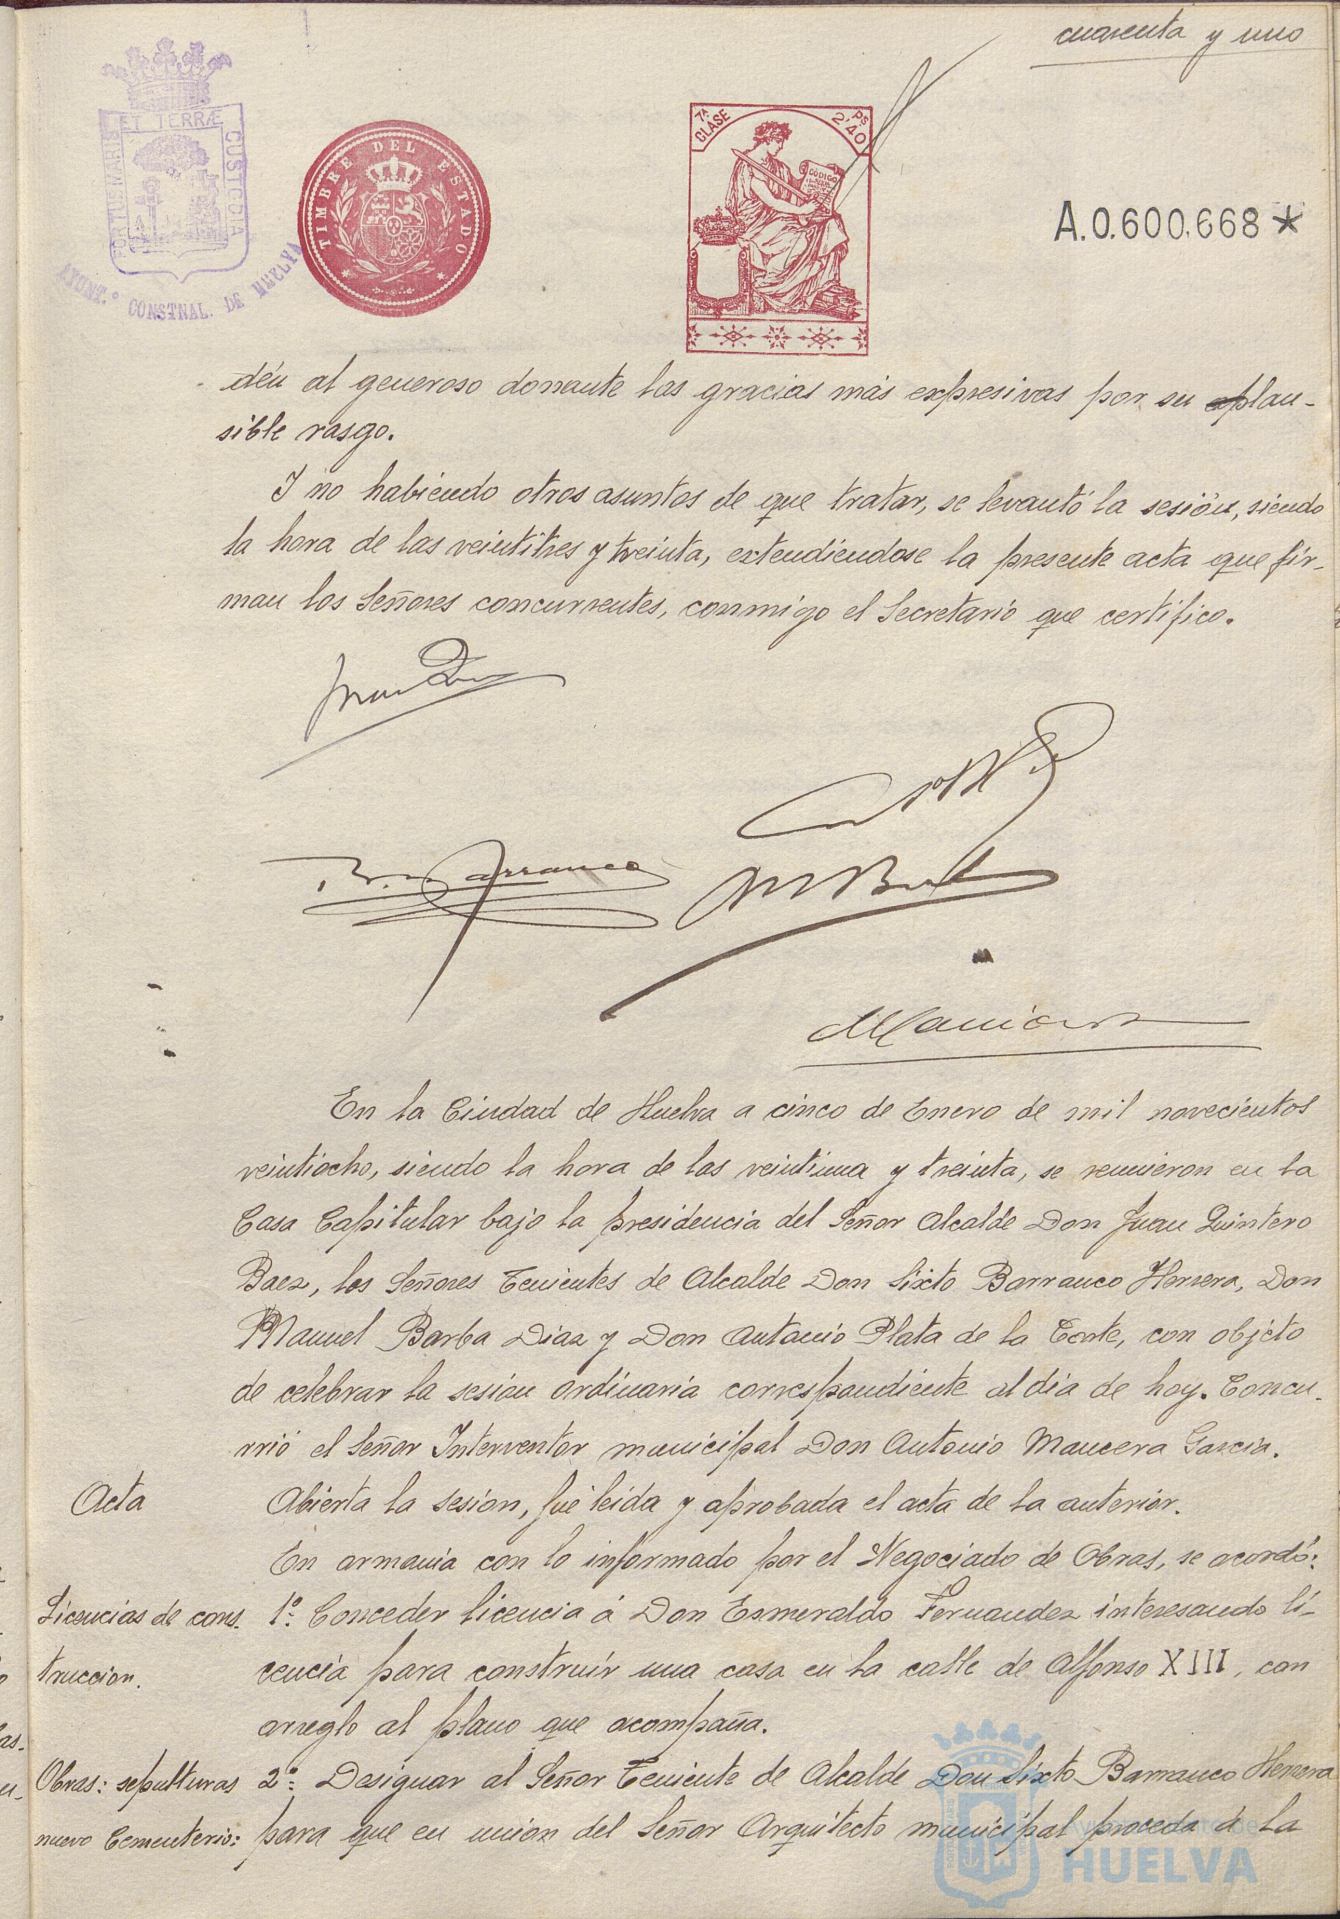 cuarenta y uno
PORTUS MARIS ET TERRÆ CUSTODIA
AYUNT.º CONSTNAL. DE HUELVA
TIMBRE DEL ESTADO
7ª CLASE
Ps 2'40
CÓDIGO
A.0.600.668*
dén al generoso donante las gracias más expresivas por su plau-
sible rasgo.
Y no habiendo otros asuntos de que tratar, se levantó la sesión, siendo
la hora de las veintitres y treinta, extendiéndose la presente acta que fir-
man los Señores concurrentes, conmigo el Secretario que certifico.
En la Ciudad de Huelva a cinco de Enero de mil novecientos
veintiocho, siendo la hora de las veintiuna y treinta, se reunieron en la
Casa Capitular bajo la presidencia del Señor Alcalde Don Juan Quintero
Baez, los Señores Tenientes de Alcalde Don Sixto Barranco Herrera, Don
Manuel Barba Diaz y Don Antonio Plata de la Corte, con objeto
de celebrar la sesion ordinaria correspondiente al dia de hoy. Concu-
rrió el Señor Interventor municipal Don Antonio Mancera Garcia.
Acta
Abierta la sesion, fué leida y aprobada el acta de la anterior.
En armonia con lo informado por el Negociado de Obras, se acordó:
Licencias de cons-
truccion.
1º: Conceder licencia á Don Esmeraldo Fernandez interesando li-
cencia para construir una casa en la calle de Alfonso XIII, con
arreglo al plano que acompaña.
Obras: sepulturas
nuevo Cementerio:
2º: Designar al Señor Teniente de Alcalde Don Sixto Barranco Herrera
para que en union del Señor Arquitecto municipal proceda á la
Ayuntamiento de
HUELVA